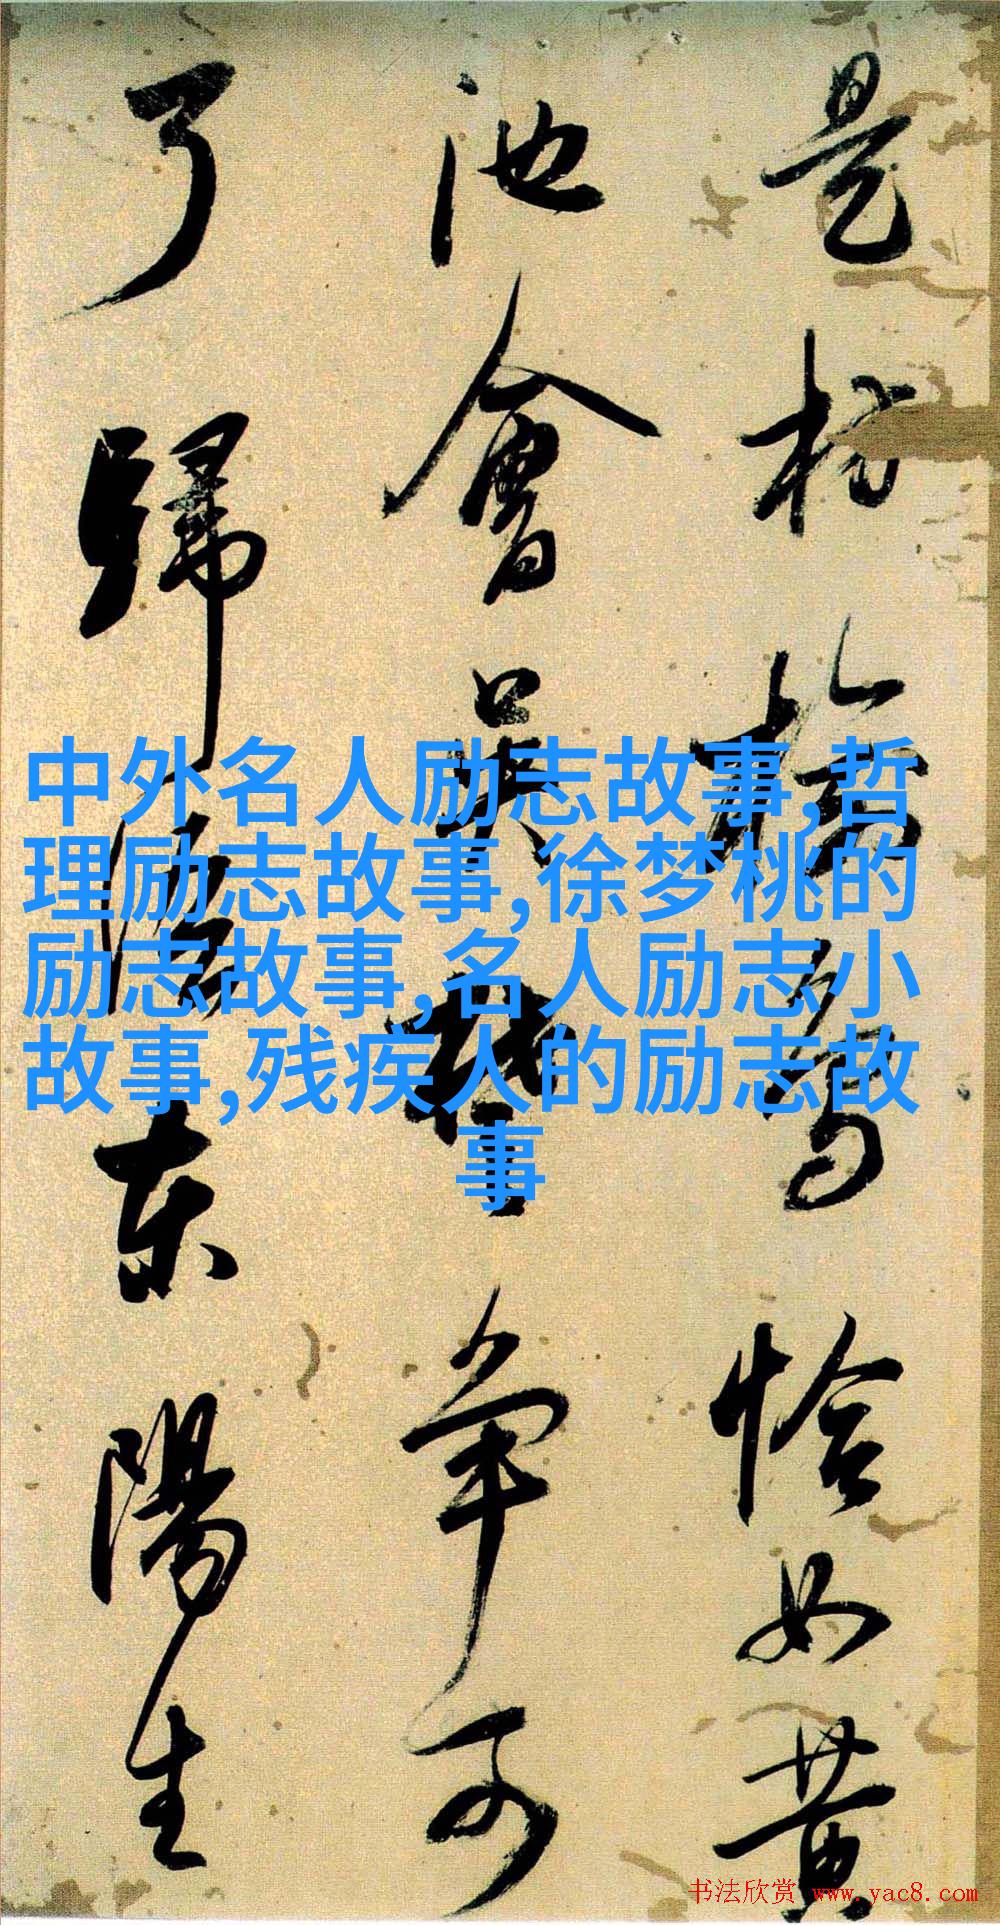 是枋恰如黄
池會吴争可
了歸東陽生
中外名人励志故事,哲
理励志故事,徐梦桃的
励志故事,名人励志小
故事,残疾人的励志故
事
书法欣赏 www.yac8.com